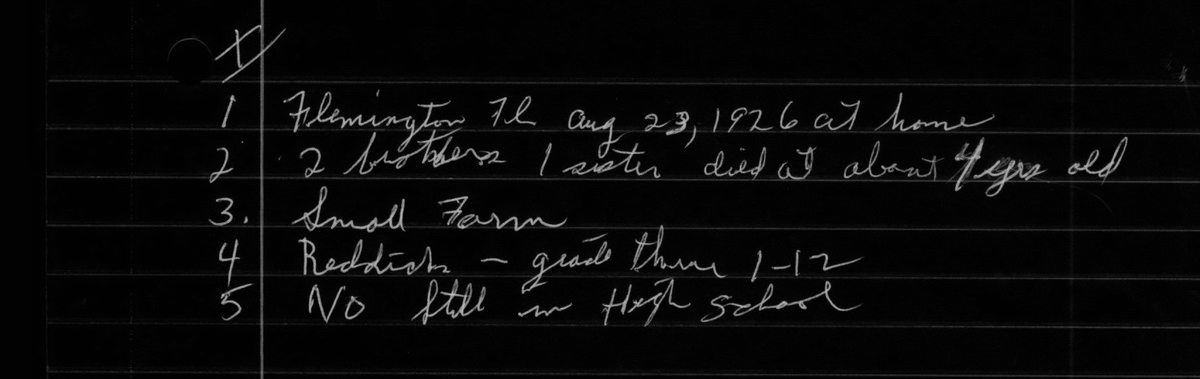 I
1 Flemington Fl Aug 23, 1926 at home
2 2 brothers 1 sister died at about 4 yrs old
3. Small Farm
4 Reddick – grade 1-12
5 No Still in High School